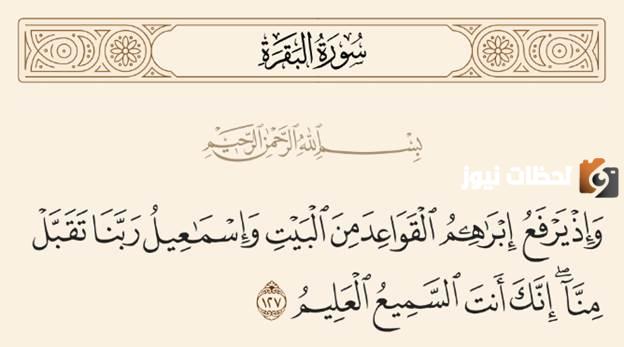 سُورَةُ البَقَرَةِ
بِسْمِ اللَّهِ الرَّحْمَٰنِ الرَّحِيمِ
لحظات نيوز
وَإِذْ يَرْفَعُ إِبْرَاهِـۧمُ الْقَوَاعِدَ مِنَ الْبَيْتِ وَإِسْمَاعِيلُ رَبَّنَا تَقَبَّلْ
مِنَّآ ۖ إِنَّكَ أَنتَ السَّمِيعُ الْعَلِيمُ ١٢٧